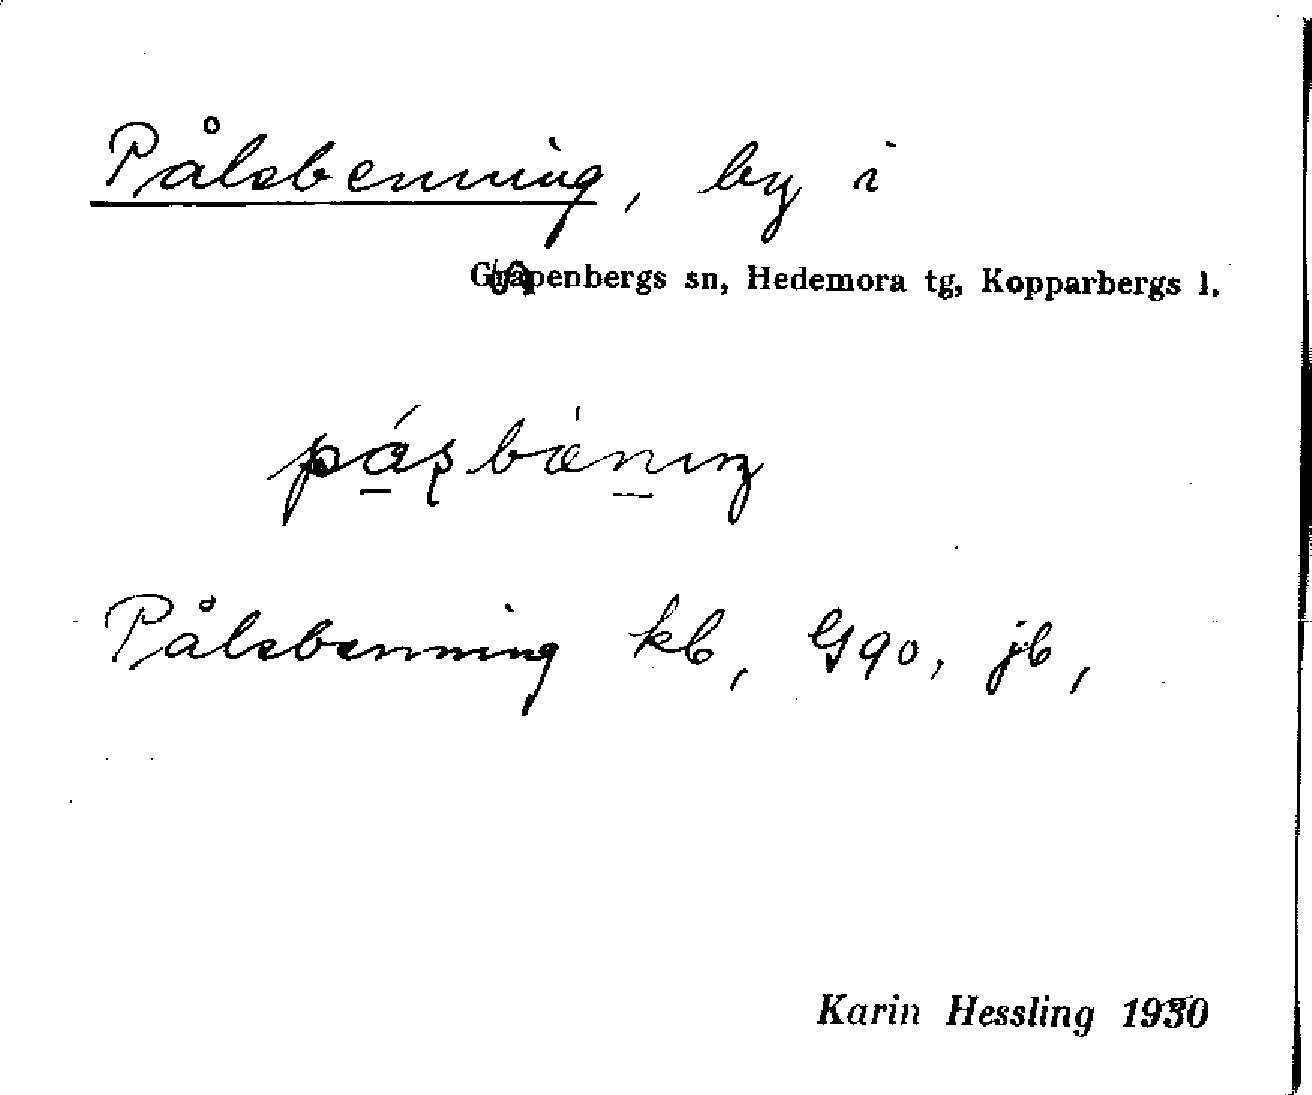 Pålsbenning, by i
Garpenbergs sn, Hedemora tg, Kopparbergs l.
Pålsbenning kb, G90, jb,
Karin Hessling 1930